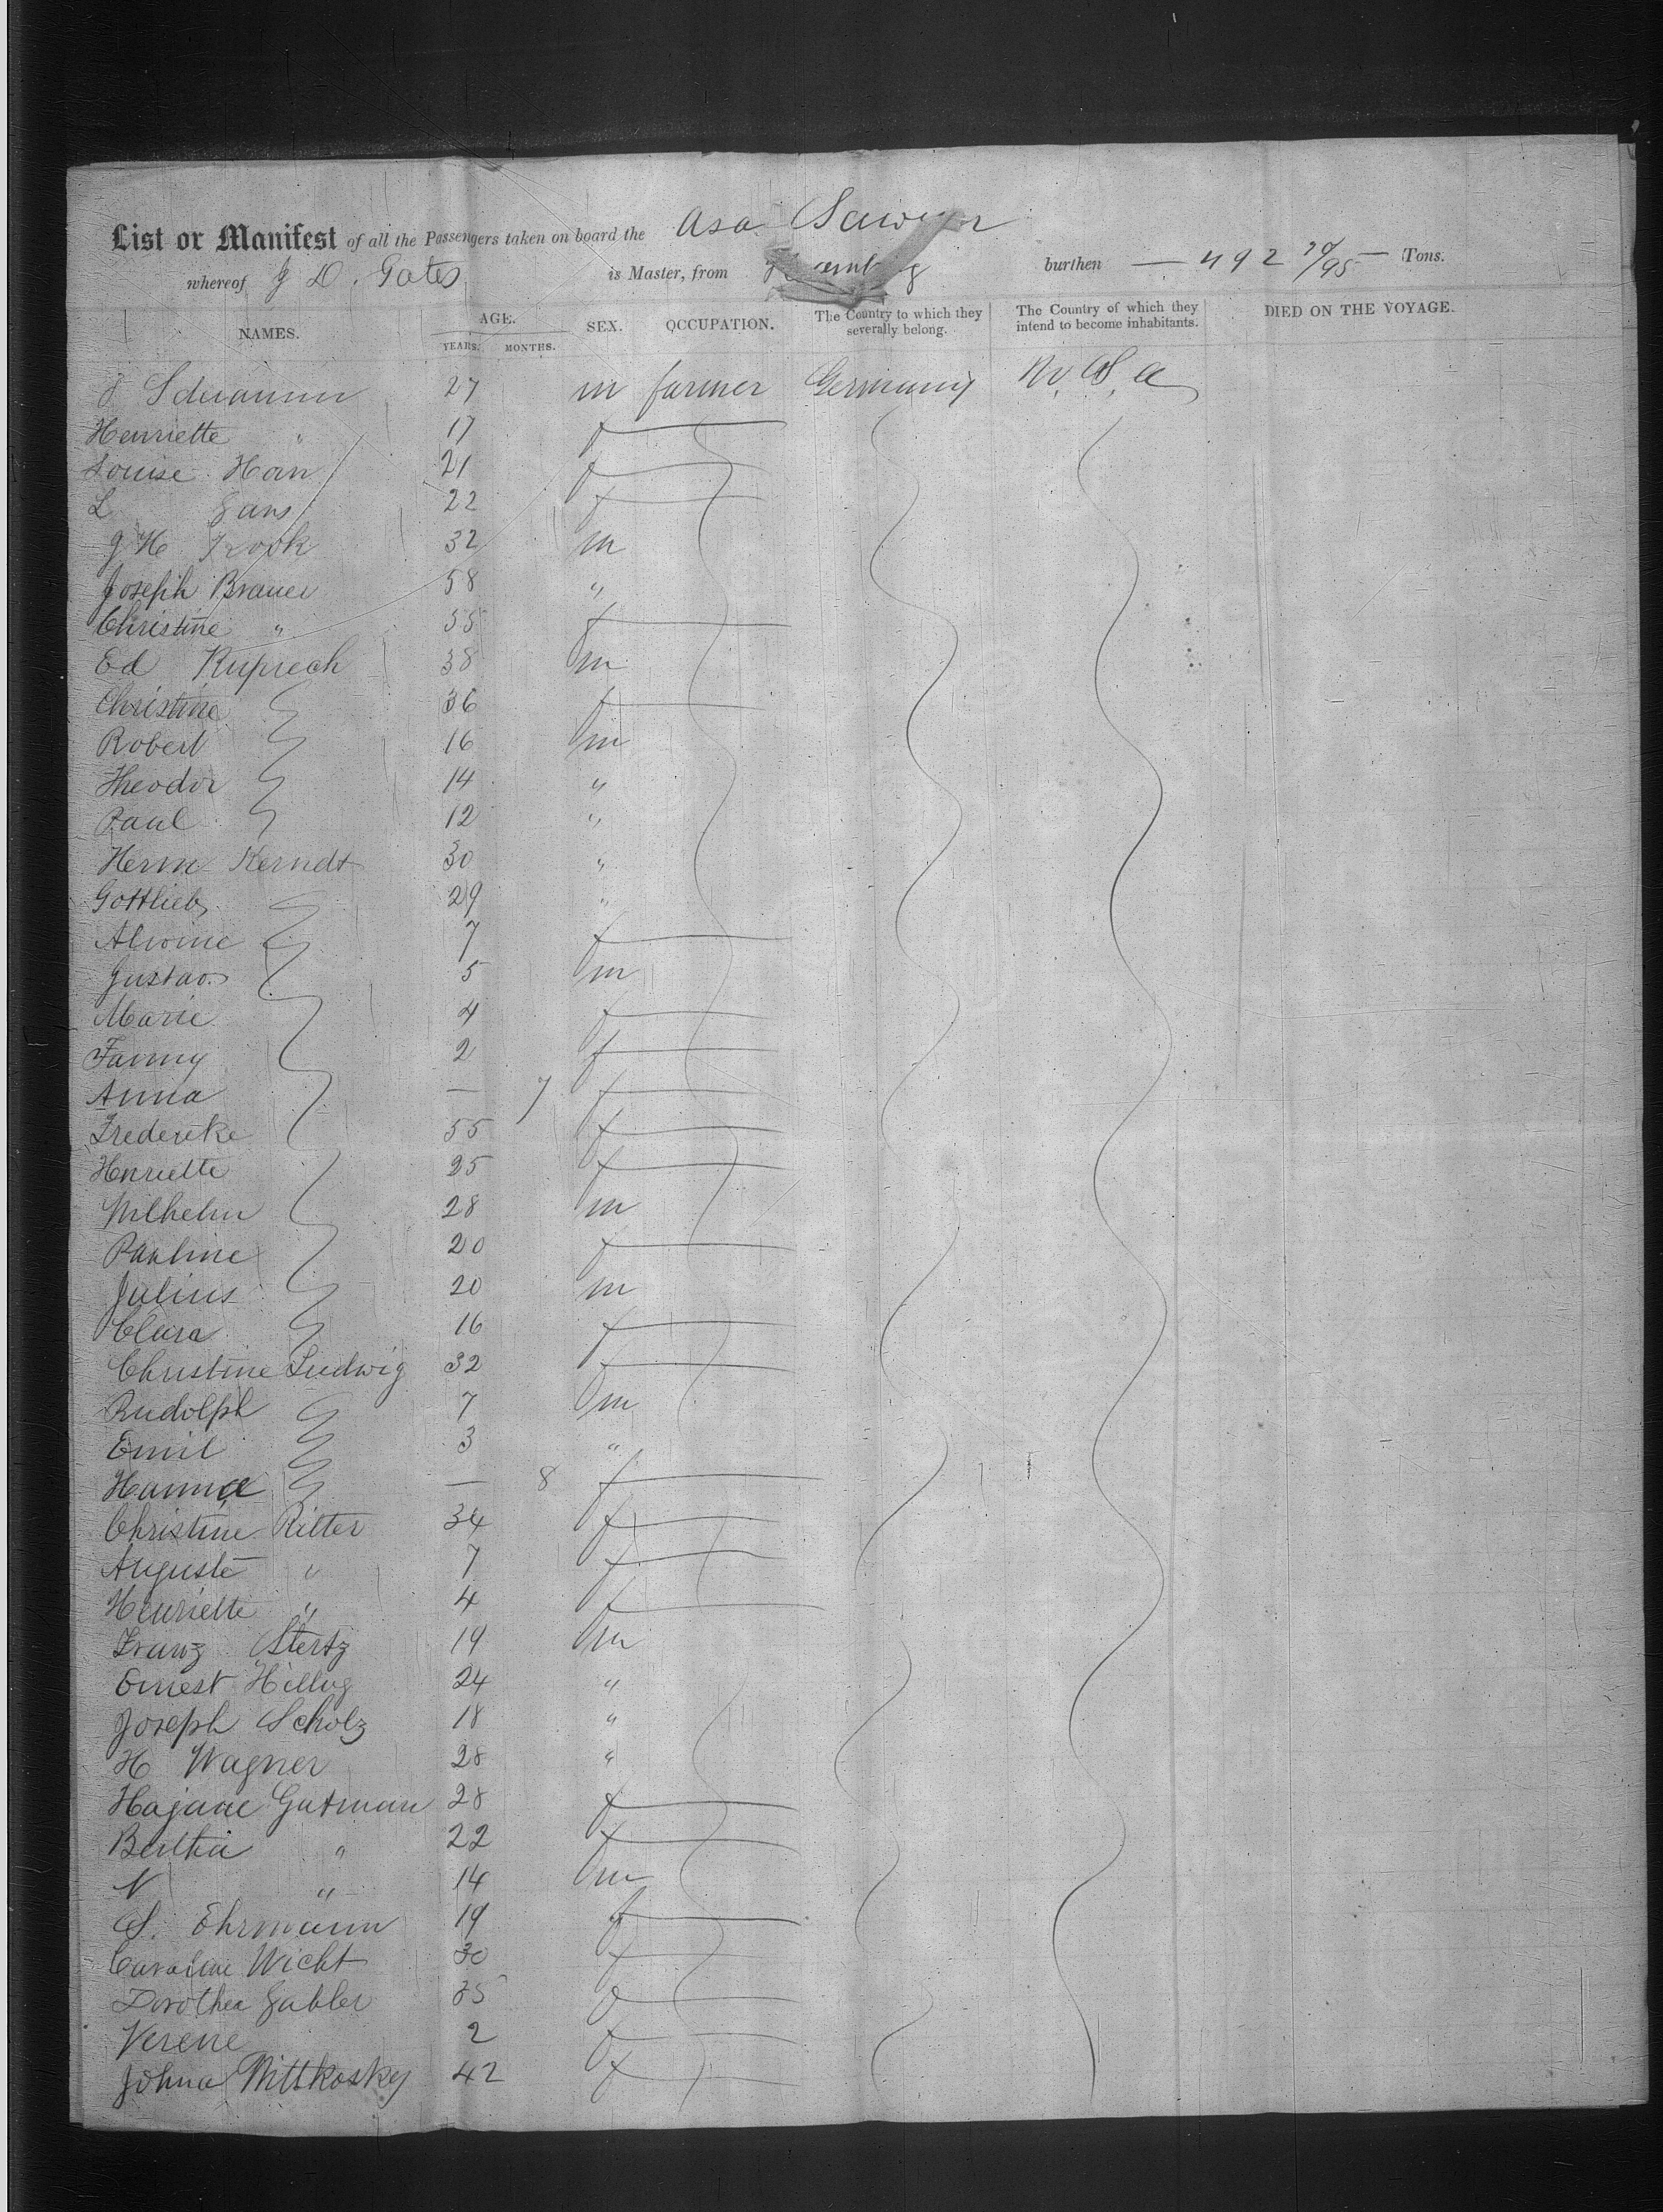 Asa Sawyer
List or Manifest of all the Passengers taken on board the
whereof J D. Gates is Master, from burthen — 492 /95 — Tons.
NAMES. AGE. YEARS. MONTHS. SEX. OCCUPATION. The Country to which they severally belong. The Country of which they intend to become inhabitants. DIED ON THE VOYAGE.
27 m farmer Germany
Henriette " 17 f
Louise Han 21 f
L Gans 22 f
32 m
Joseph Brauer 58 "
Christine " 55 f
Ed Ruprech 38 m
Christine 36 f
Robert 16 m
Theodor 14 "
Paul 12 "
Herm Kerndt 30 "
Gottlieb 29 "
Alwine 7 f
Gustav 5 m
Marie 4 f
Fanny 2 f
Anna — 7 f
Fredericke 55 f
Henriette 25 f
Wilhelm 28 m
Pauline 20 f
Julius 20 m
Clara 16 f
Christine Ludwig 32 f
Rudolph 7 m
Emil 3 "
Hanna — 8 f
Christine Ritter 34 f
Auguste " 7 f
Henriette " 4 f
Franz Stertz 19 m
Ernest Hillig 24 "
Joseph Scholz 18 "
H Wagner 28 "
Gutman 28 f
Bertha " 22 f
N " 14 m
S. Ehrmann 19 f
Caroline Wicht 30 f
Dorothea Gabler 35 f
Verene 2 f
Johna Wittkosky 42 f